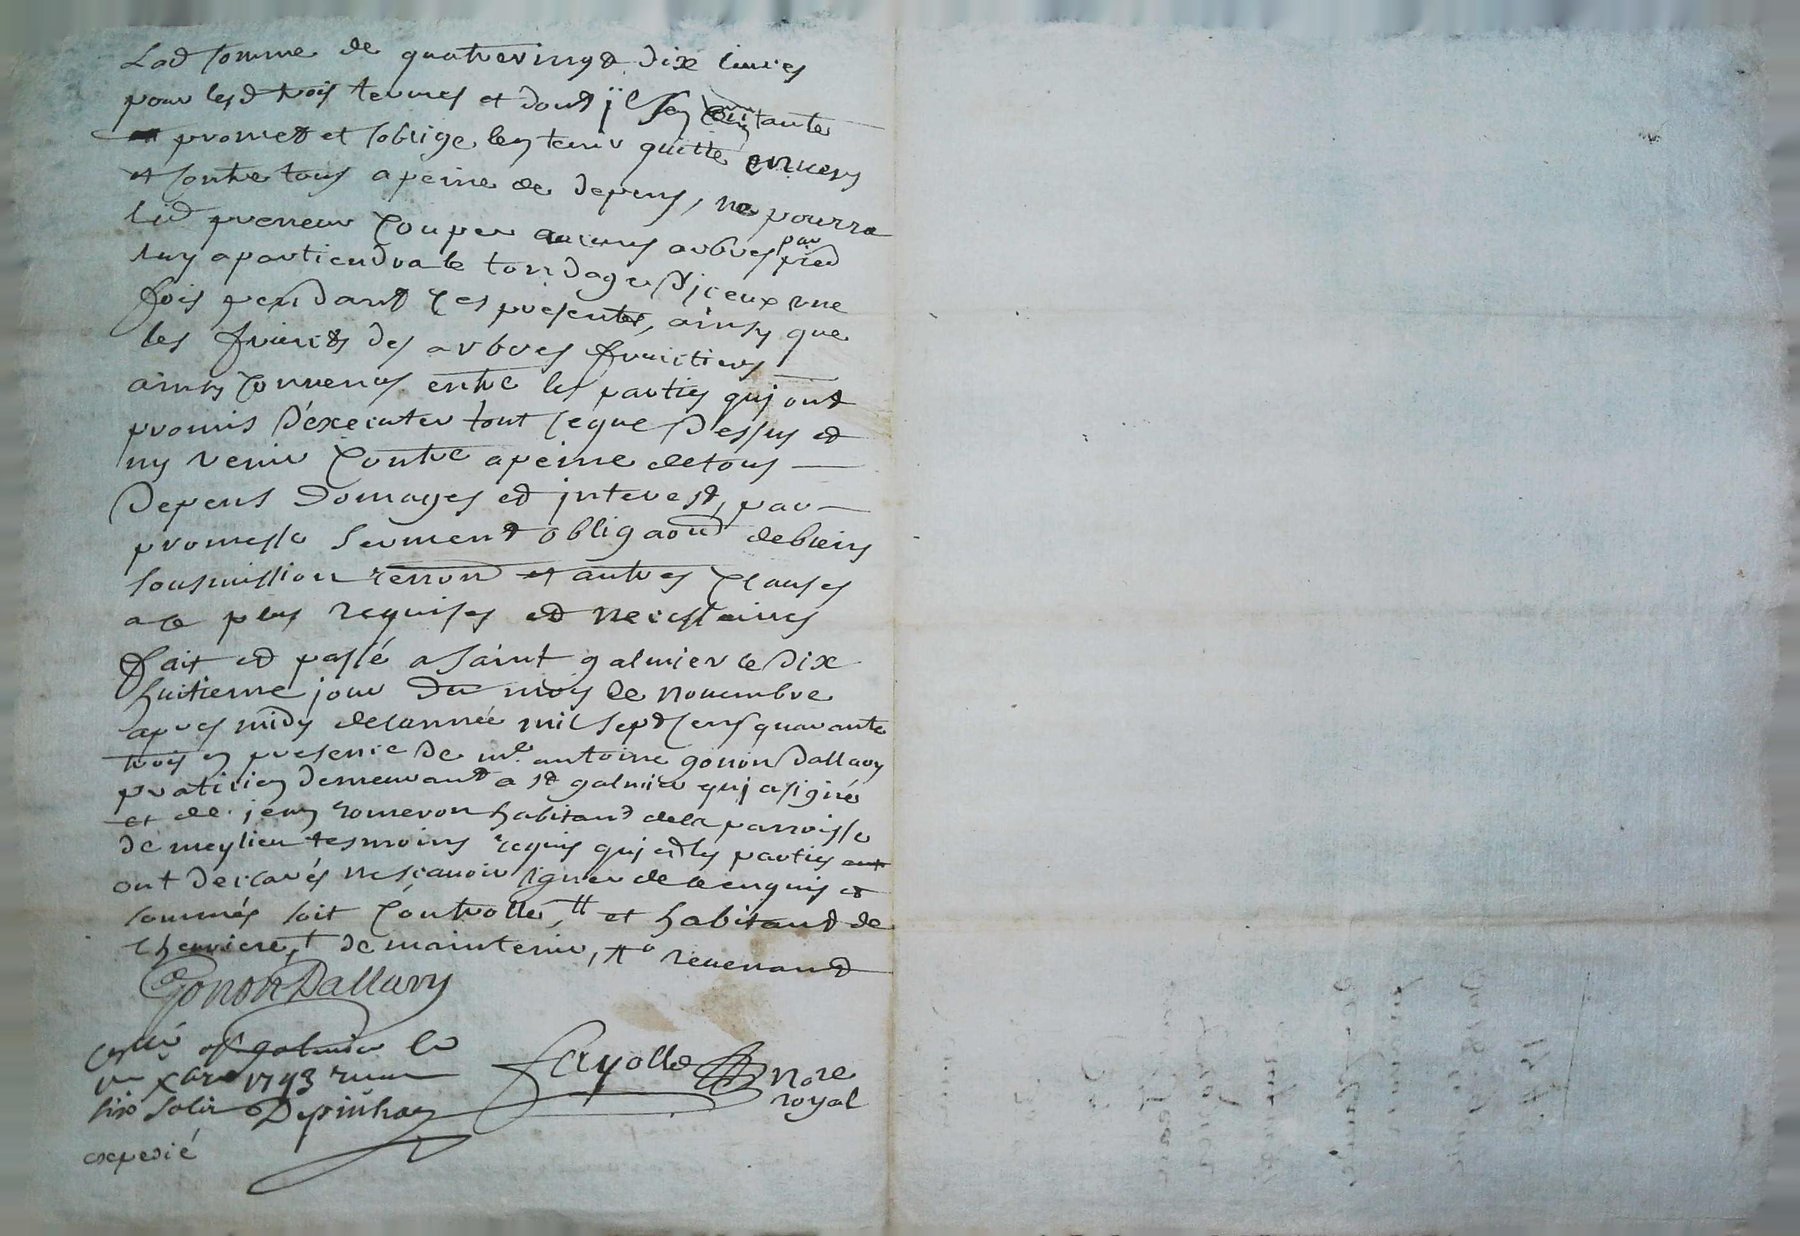 Lad somme de quatrevingt dix livres
pour lesd trois termes et dont il sen contante
promet et soblige len tenir quitte envers
et contre tous a peine de depens, ne pourra
led preneur couper aucuns arbres par pied
luy apartiendra le tondage d'iceux une
fois pendant ces presentes, ainsy que
les fruicts des arbres fruictiers
ainsy convenus entre les parties qui ont
promis d'executer tout ceque dessus et
ny venir contre a peine detous
depens domages et interest, par
promesse serment obligaon debiens
sousmission renon et autres clauses
a ce plus requises et necessaires
fait et passé a saint galmier le dix
huitieme jour du mois de novembre
apres midy delannée mil sept cens quarante
trois en presence de me antoine gonon Dallary
praticien demeurant a st galmier qui a signé
et de jean romeron habitant dela parroisse
de meylieu tesmoins requis qui et les parties
ont declarés ne scavoir signer de ce enquis et
sommés soit controllé, tt et habitant de
cheuriere, t de maintenir, tto revenant
Gonon Dallary
collé a st galmier le
xbre 1743 recu
six sols Depinhac
Fayolle nore
royal
expedié